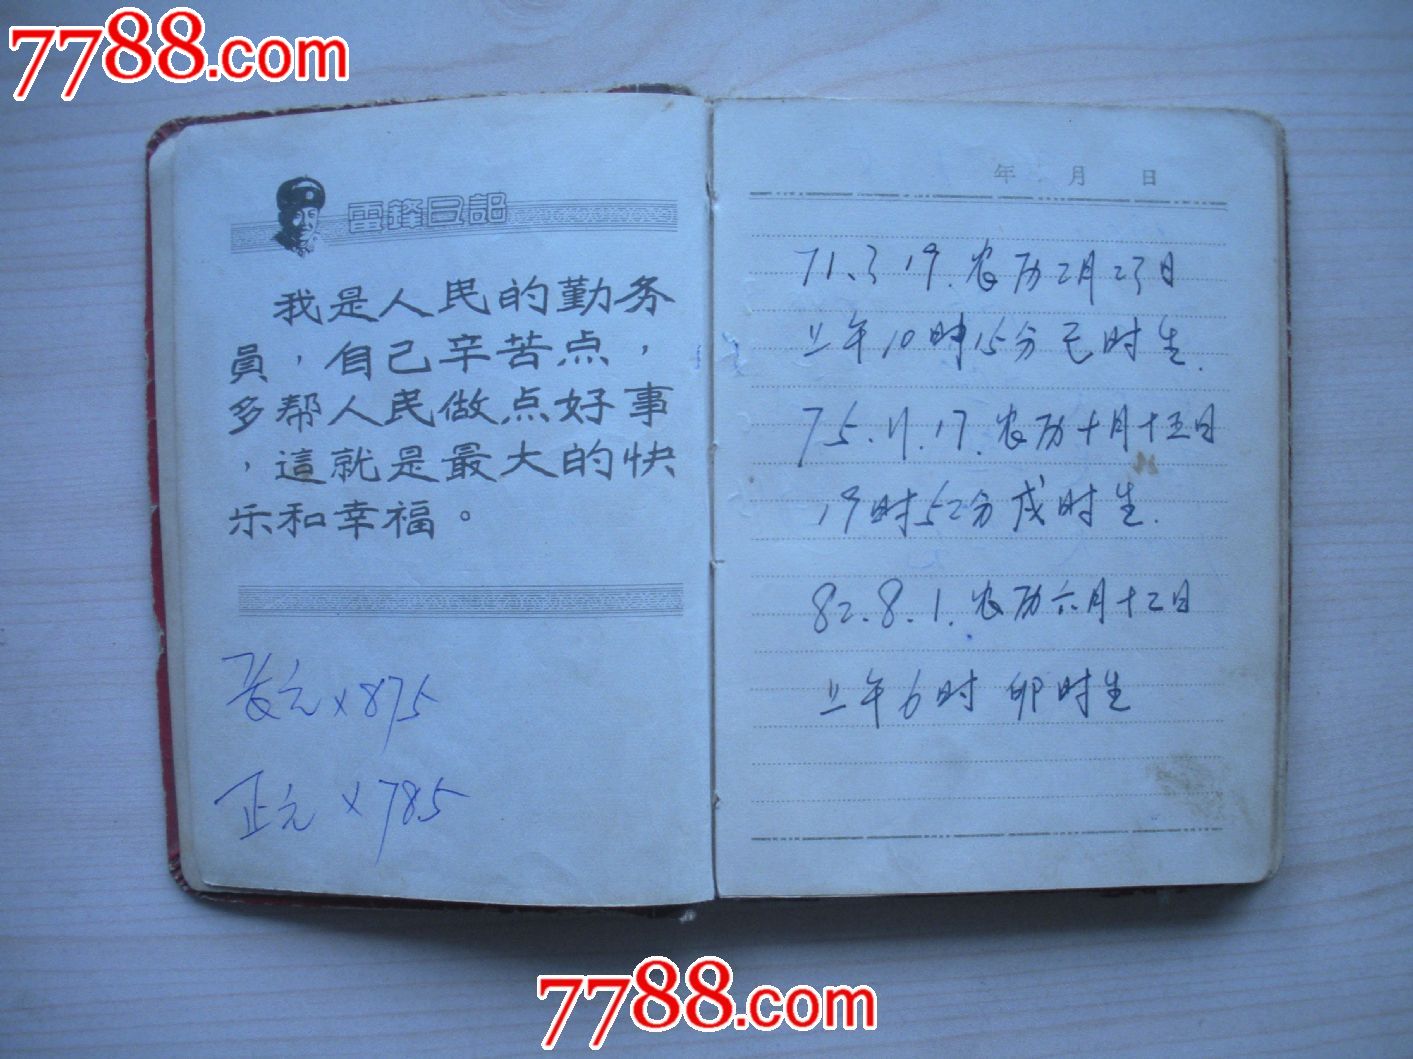 7788.com
雷锋日記
我是人民的勤务
員，自己辛苦点，
多帮人民做点好事
，這就是最大的快
乐和幸福。
长元×875
正元×785
年 月 日
71.3 19. 农历二月23日
上午10时15分 巳时生.
75.11.17. 农历十月十五日
19时52分 戌时生.
82.8.1. 农历六月十二日
上午6时 卯时生
7788.com